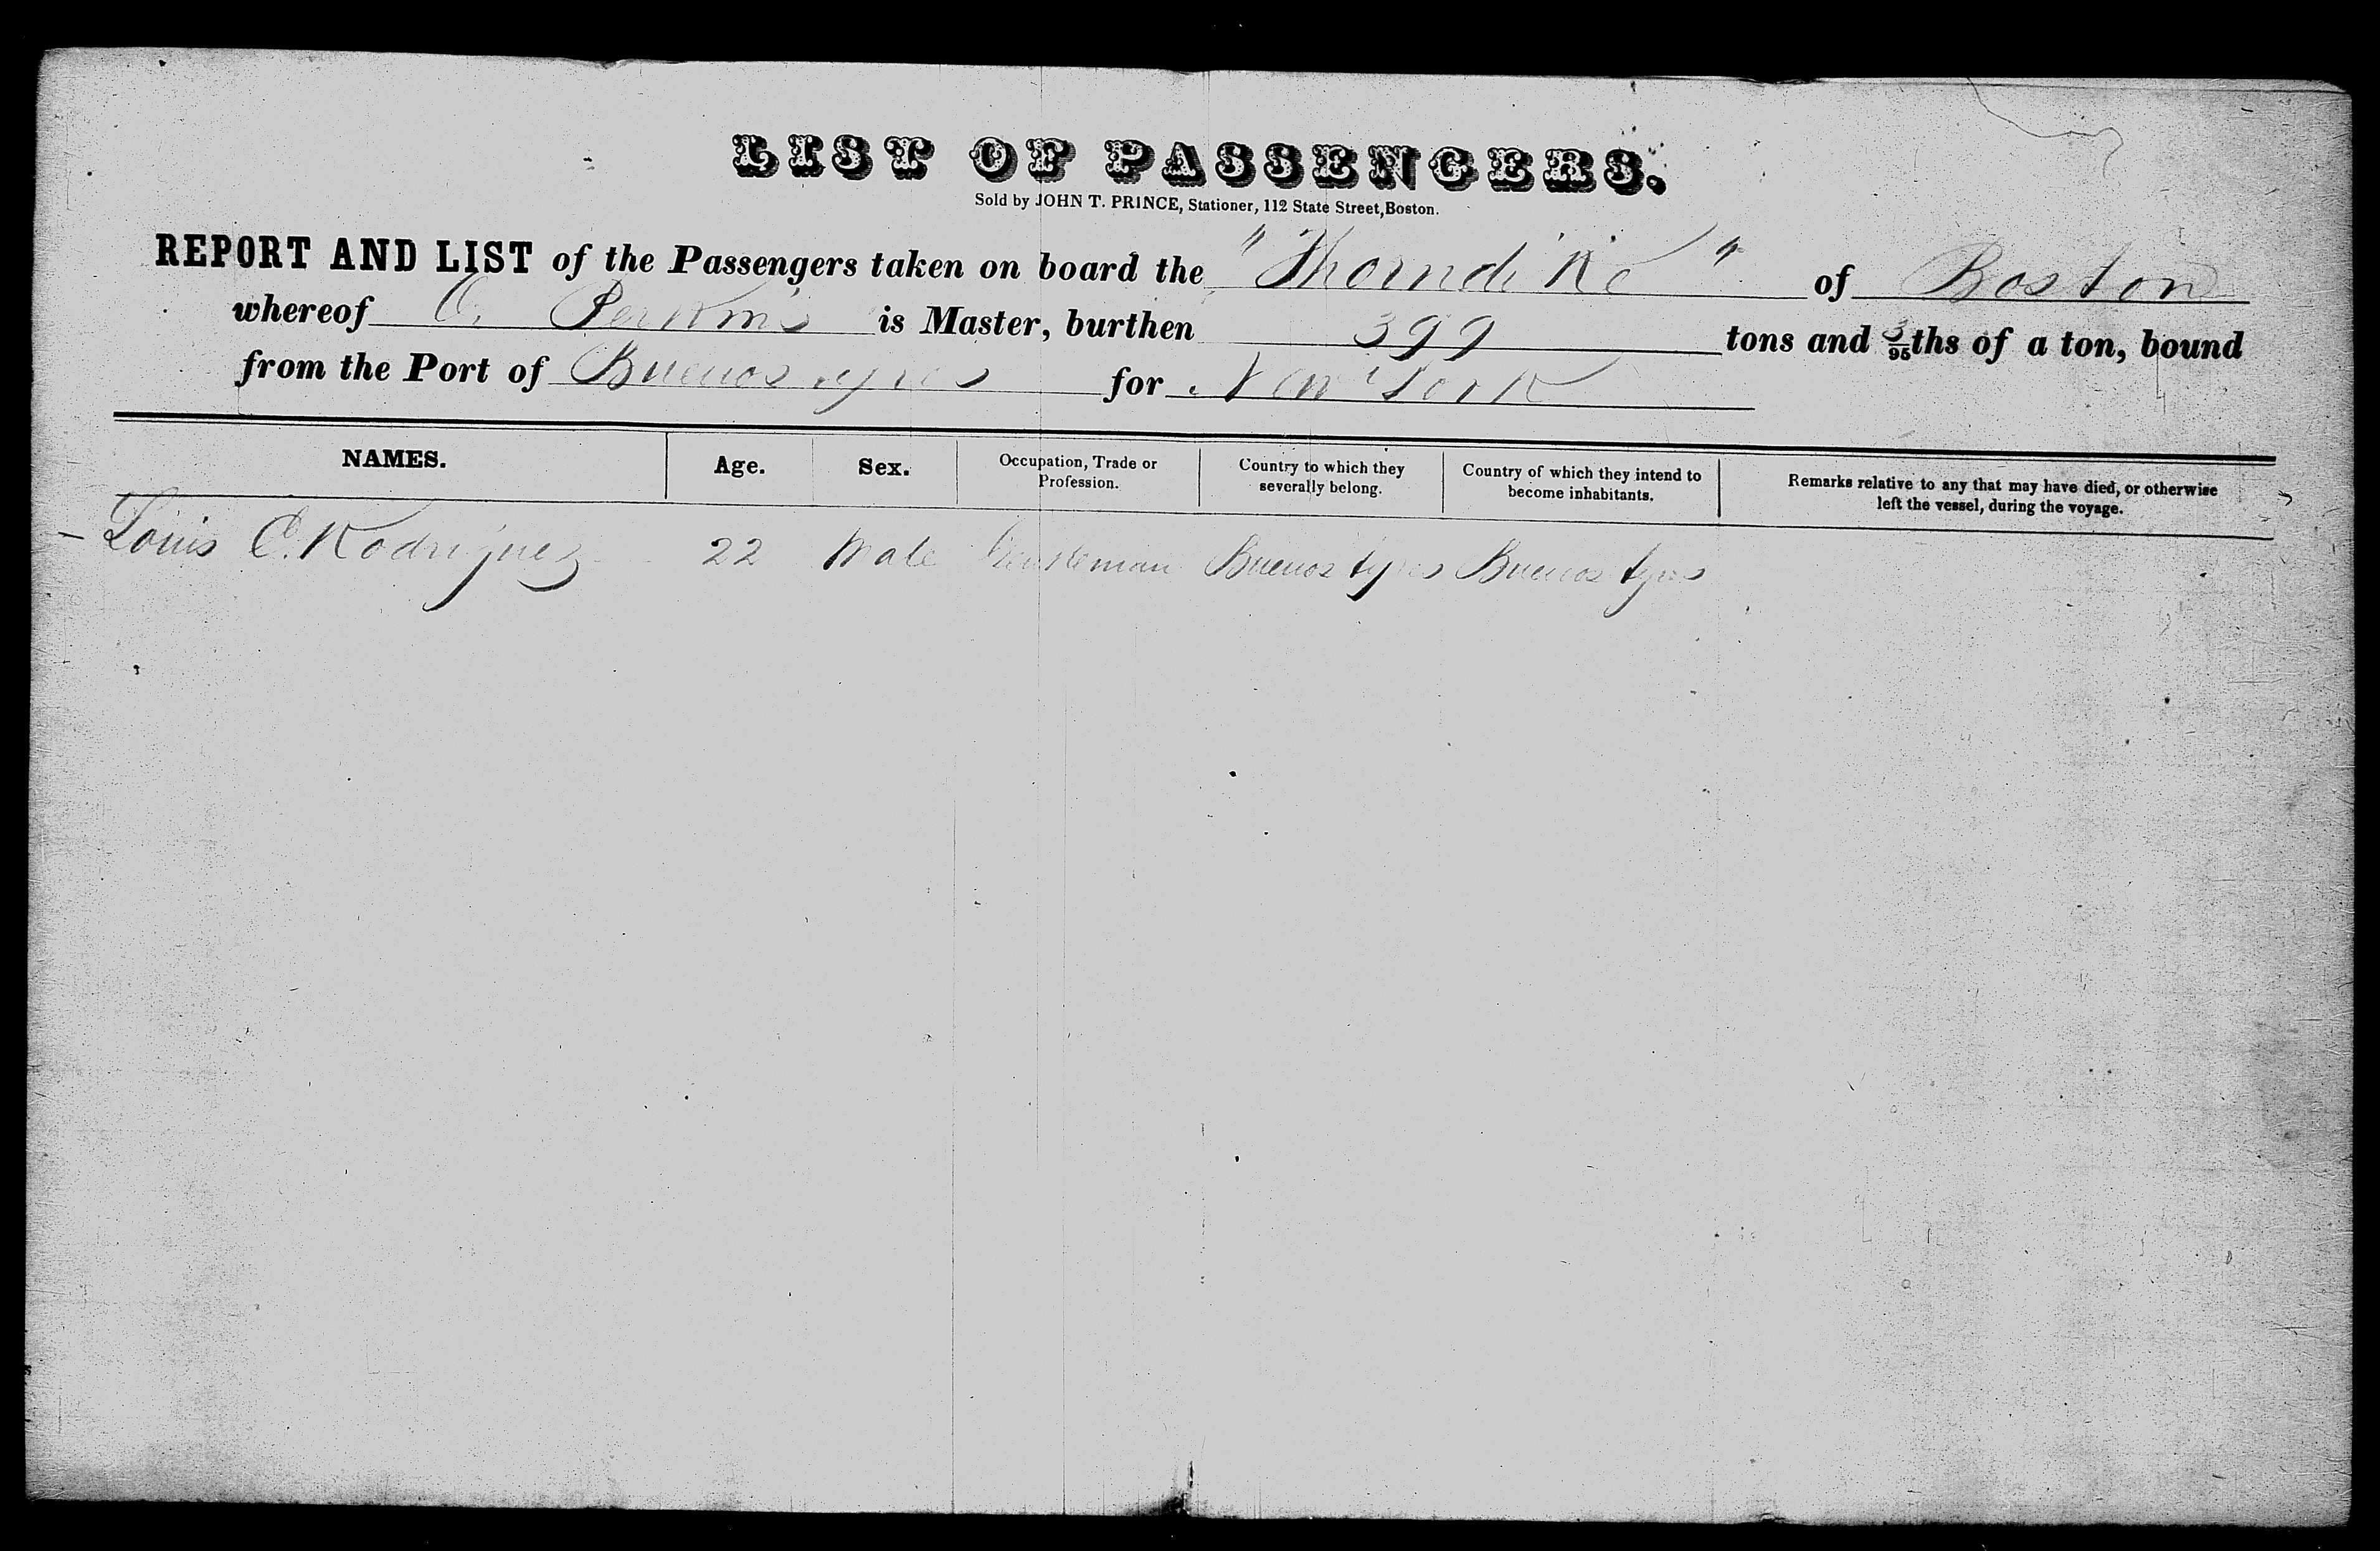 LIST OF PASSENGERS.
Sold by JOHN T. PRINCE, Stationer, 112 State Street, Boston.
REPORT AND LIST of the Passengers taken on board the "Thorndike" of Boston
whereof O. Perkins is Master, burthen 399 tons and 3/95ths of a ton, bound
from the Port of Buenos Ayres for New York
NAMES. Age. Sex. Occupation, Trade or Profession. Country to which they severally belong. Country of which they intend to become inhabitants. Remarks relative to any that may have died, or otherwise left the vessel, during the voyage.
Louis C. Rodriguez 22 Male Gentleman Buenos Ayres Buenos Ayres